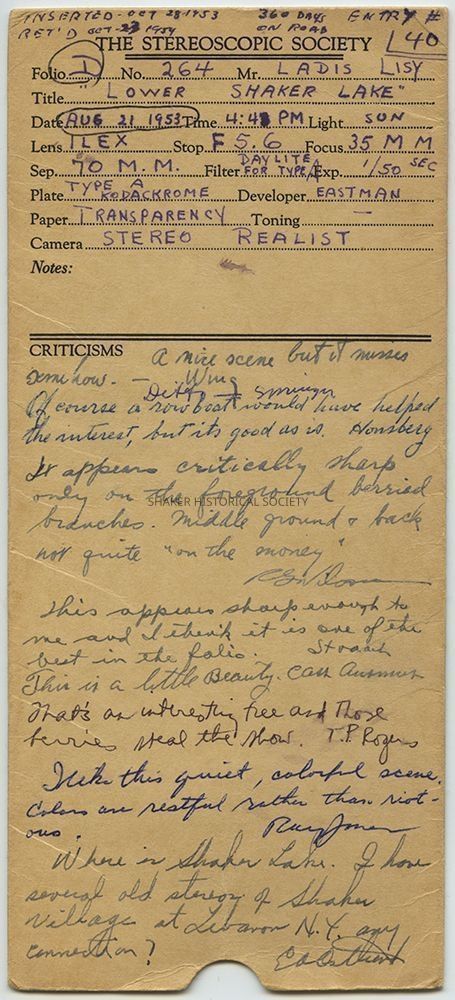 INSERTED - OCT 28 1953 360 DAYS ENTRY #
RET'D OCT-23 1954 ON ROAD 40
THE STEREOSCOPIC SOCIETY
Folio D No. 264 Mr. LADIS LISY
Title "LOWER SHAKER LAKE"
Date AUG 21 1953 Time 4:45 PM Light SUN
Lens ILEX Stop F 5.6 Focus 35 MM
Sep. 70 M.M. Filter DAYLITE FOR TYPE A Exp. 1/50 SEC
Plate TYPE A KODACKROME Developer EASTMAN
Paper TRANSPARENCY Toning —
Camera STEREO REALIST
Notes:
CRITICISMS A nice scene but it misses
somehow. — Wing
Ditto — Springer
Of course a rowboat would have helped
the interest, but its good as is. Honsberg
It appears critically sharp
only on the foreground berried
SHAKER HISTORICAL SOCIETY
branches. Middle ground & back
not quite "on the money"
This appears sharp enough to
me and I think it is one of the
best in the folio.
This is a little Beauty.
That's an interesting tree and those
berries steal the show. T.P. Rogers
I like this quiet, colorful scene.
Colors are restful rather than riot-
ous. Ray Jones
Where is Shaker Lake. I have
several old stereos of Shaker
Village at Lebanon N.Y. any
connection?